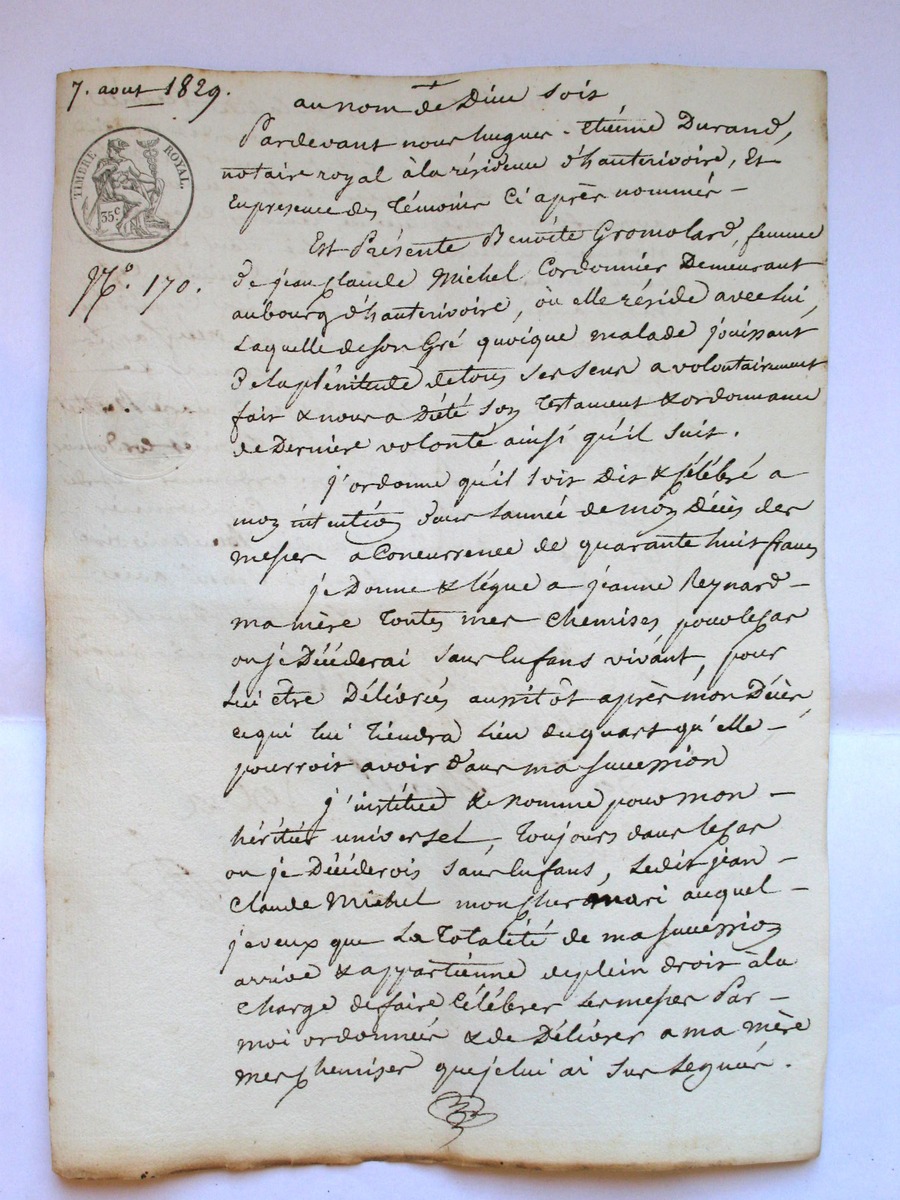 7. aout 1829.
au nom de Dieu soit
TIMBRE ROYAL.
35.c
N.o 170.
Pardevant nous hugues-Etiénne Durand,
notaire royal à la résidence d'hauterivoire, Et
En presence des Témoins Ci après nommés –
Est Présente Benoîte Gromolard, femme
de jean Claude Michel Cordonnier Demeurant
au bourg d'hauterivoire, où elle réside avec lui,
Laquelle de son Gré quoique malade jouissant
De la plénitude de tous ses sens a volontairement
fait & nous a Dicté son Testament & ordonnance
de Derniere volonté ainsi qu'il suit.
j'ordonne qu'il soit Dit & Célébré a
mon intention dans l'année de mon Décès des
messes a Concurrence de quarante huit francs
je Donne & légue a jeanne Reynard –
ma mère Toutes mes Chemises pour le cas
ou je Décéderai sans Enfans vivant, pour
Lui être Délivrées aussitôt après mon Décès,
ce qui lui Tiendra Lieu du quart qu'elle –
pourroit avoir dans ma succession
j'institue & nomme pour mon –
héritier universel, Toujours dans le cas
ou je Décéderois sans Enfans, Ledit jean –
Claude Michel mon Cher mari auquel –
je veux que La Totalité de ma succession
arrive & appartiénne de plein droit à la
Charge de faire Célébrer Les messes Par –
moi ordonnées & de Délivrer a ma mère
mes Chemises que je lui ai sus Léguées.